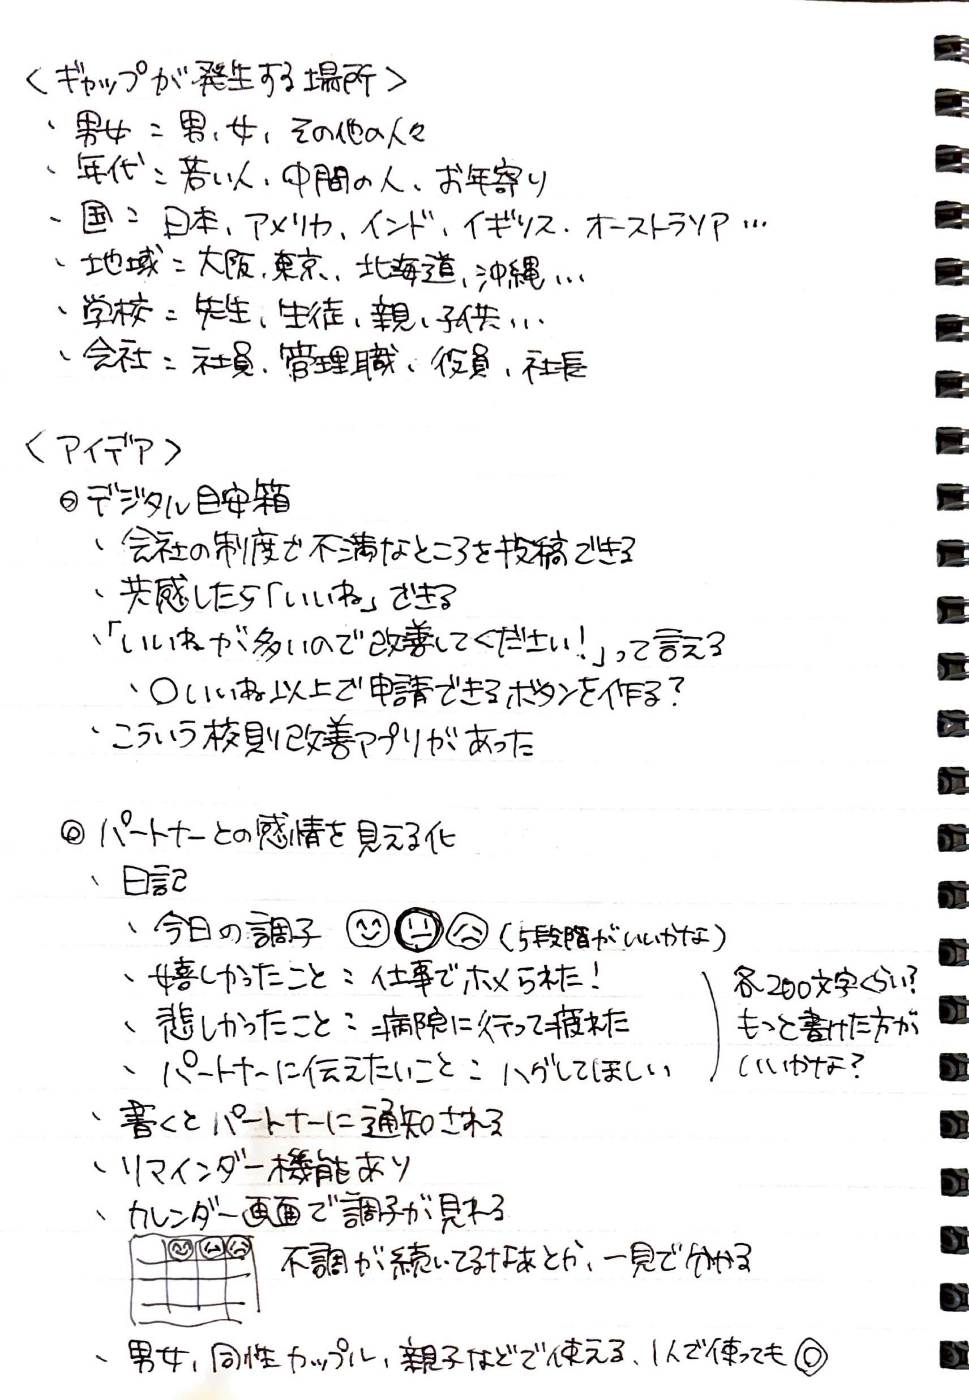 〈ギャップが発生する場所〉
・男女：男、女、その他の人々
・年代：若い人、中間の人、お年寄り
・国：日本、アメリカ、インド、イギリス、オーストラリア…
・地域：大阪、東京、北海道、沖縄…
・学校：先生、生徒、親、子供…
・会社：社員、管理職、役員、社長
〈アイデア〉
◎デジタル目安箱
・会社の制度で不満なところを投稿できる
・共感したら「いいね」できる
・「いいねが多いので改善してください！」って言える
・〇いいね以上で申請できるボタンを作る？
・こういう校則改善アプリがあった
◎パートナーとの感情を見える化
・日記
・今日の調子 (5段階がいいかな)
・嬉しかったこと：仕事でホメられた！
・悲しかったこと：病院に行って疲れた
・パートナーに伝えたいこと：ハグしてほしい
各200文字くらい？
もっと書けた方が
いいかな？
・書くとパートナーに通知される
・リマインダー機能あり
・カレンダー画面で調子が見れる
不調が続いてるなあとか、一見で分かる
・男女、同性カップル、親子などで使える、1人で使っても◎